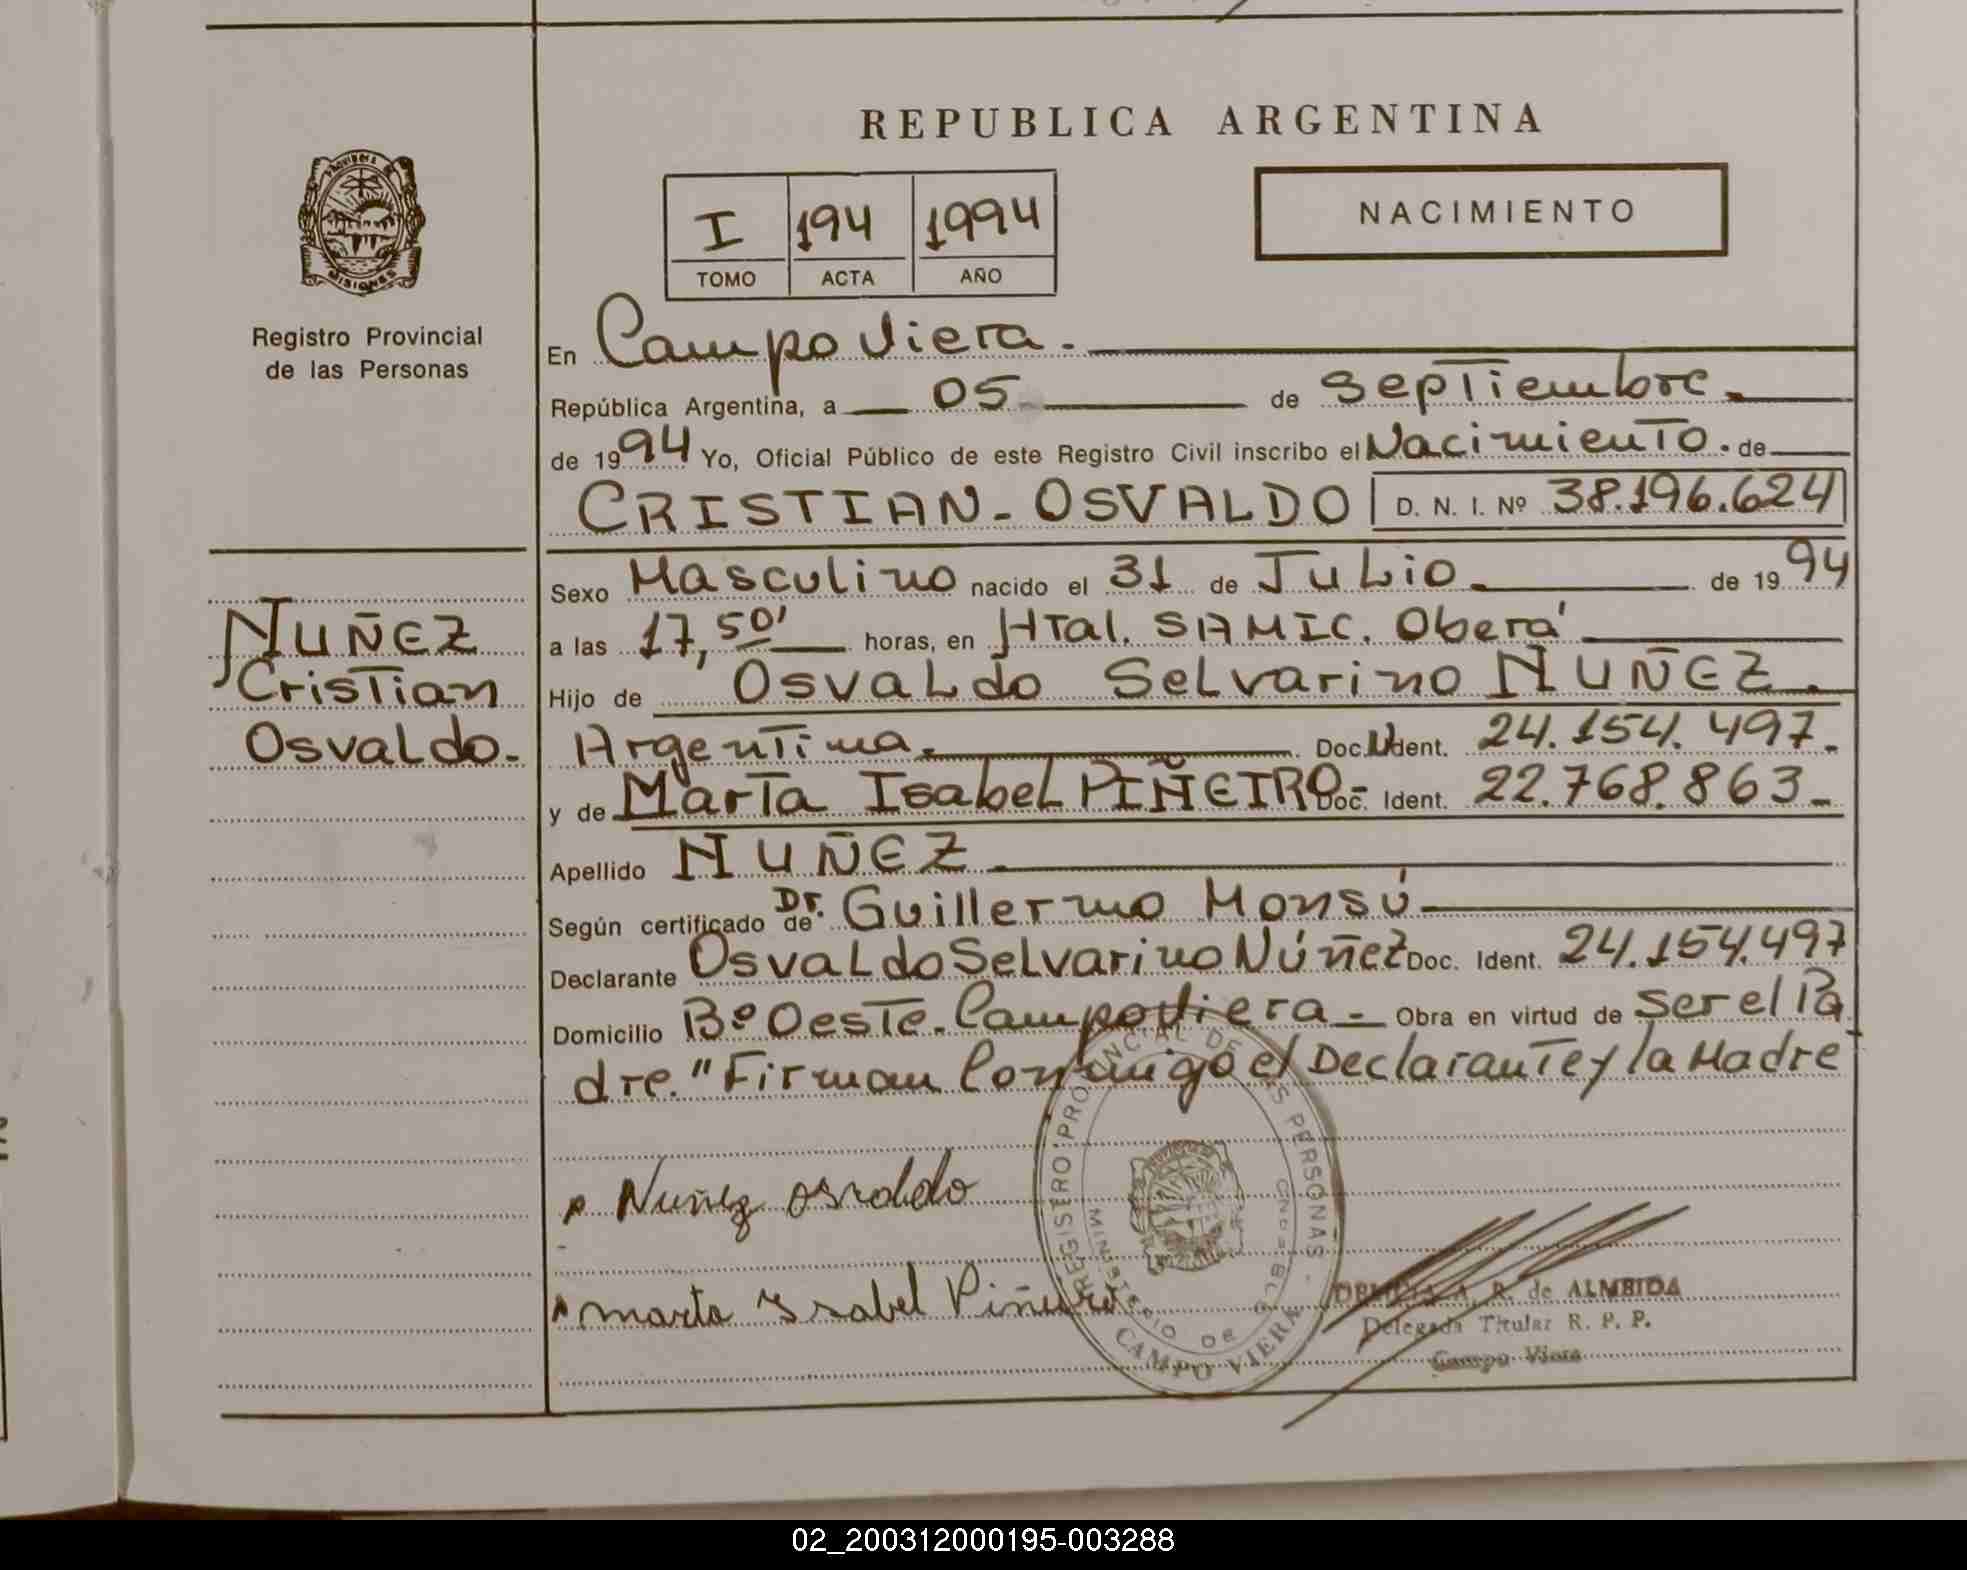 REPUBLICA ARGENTINA
PROVINCIA
MISIONES
Registro Provincial
de las Personas
I 194 1994
TOMO ACTA AÑO
NACIMIENTO
En Campo Viera.
República Argentina, a 05 de Septiembre.
de 1994 Yo, Oficial Público de este Registro Civil inscribo el Nacimiento. de
CRISTIAN-OSVALDO D. N. I. Nº 38.196.624
NUÑEZ
Cristian
Osvaldo.
Sexo Masculino nacido el 31 de Julio. de 1994
a las 17,50' horas, en Htal. SAMIC. Oberá
Hijo de Osvaldo Selvarino NUÑEZ.
Argentina. Doc. Ident. 24.154.497.
y de Marta Isabel PIÑEIRO- Doc. Ident. 22.768.863-
Apellido NUÑEZ.
Según certificado de Dr. Guillermo Monsú
Declarante Osvaldo Selvarino Núñez Doc. Ident. 24.154.497
Domicilio Bº Oeste. Campo Viera- Obra en virtud de ser el Pa
dre." Firman Conmigo el Declarante y la Madre
Nuñez Osvaldo
Marta Ysabel Piñeiro
REGISTRO PROVINCIAL DE LAS PERSONAS -
MINISTERIO DE
CAMPO VIERA
A. R. de ALMEIDA
Delegada Titular R. P. P.
Campo Viera
02_200312000195-003288